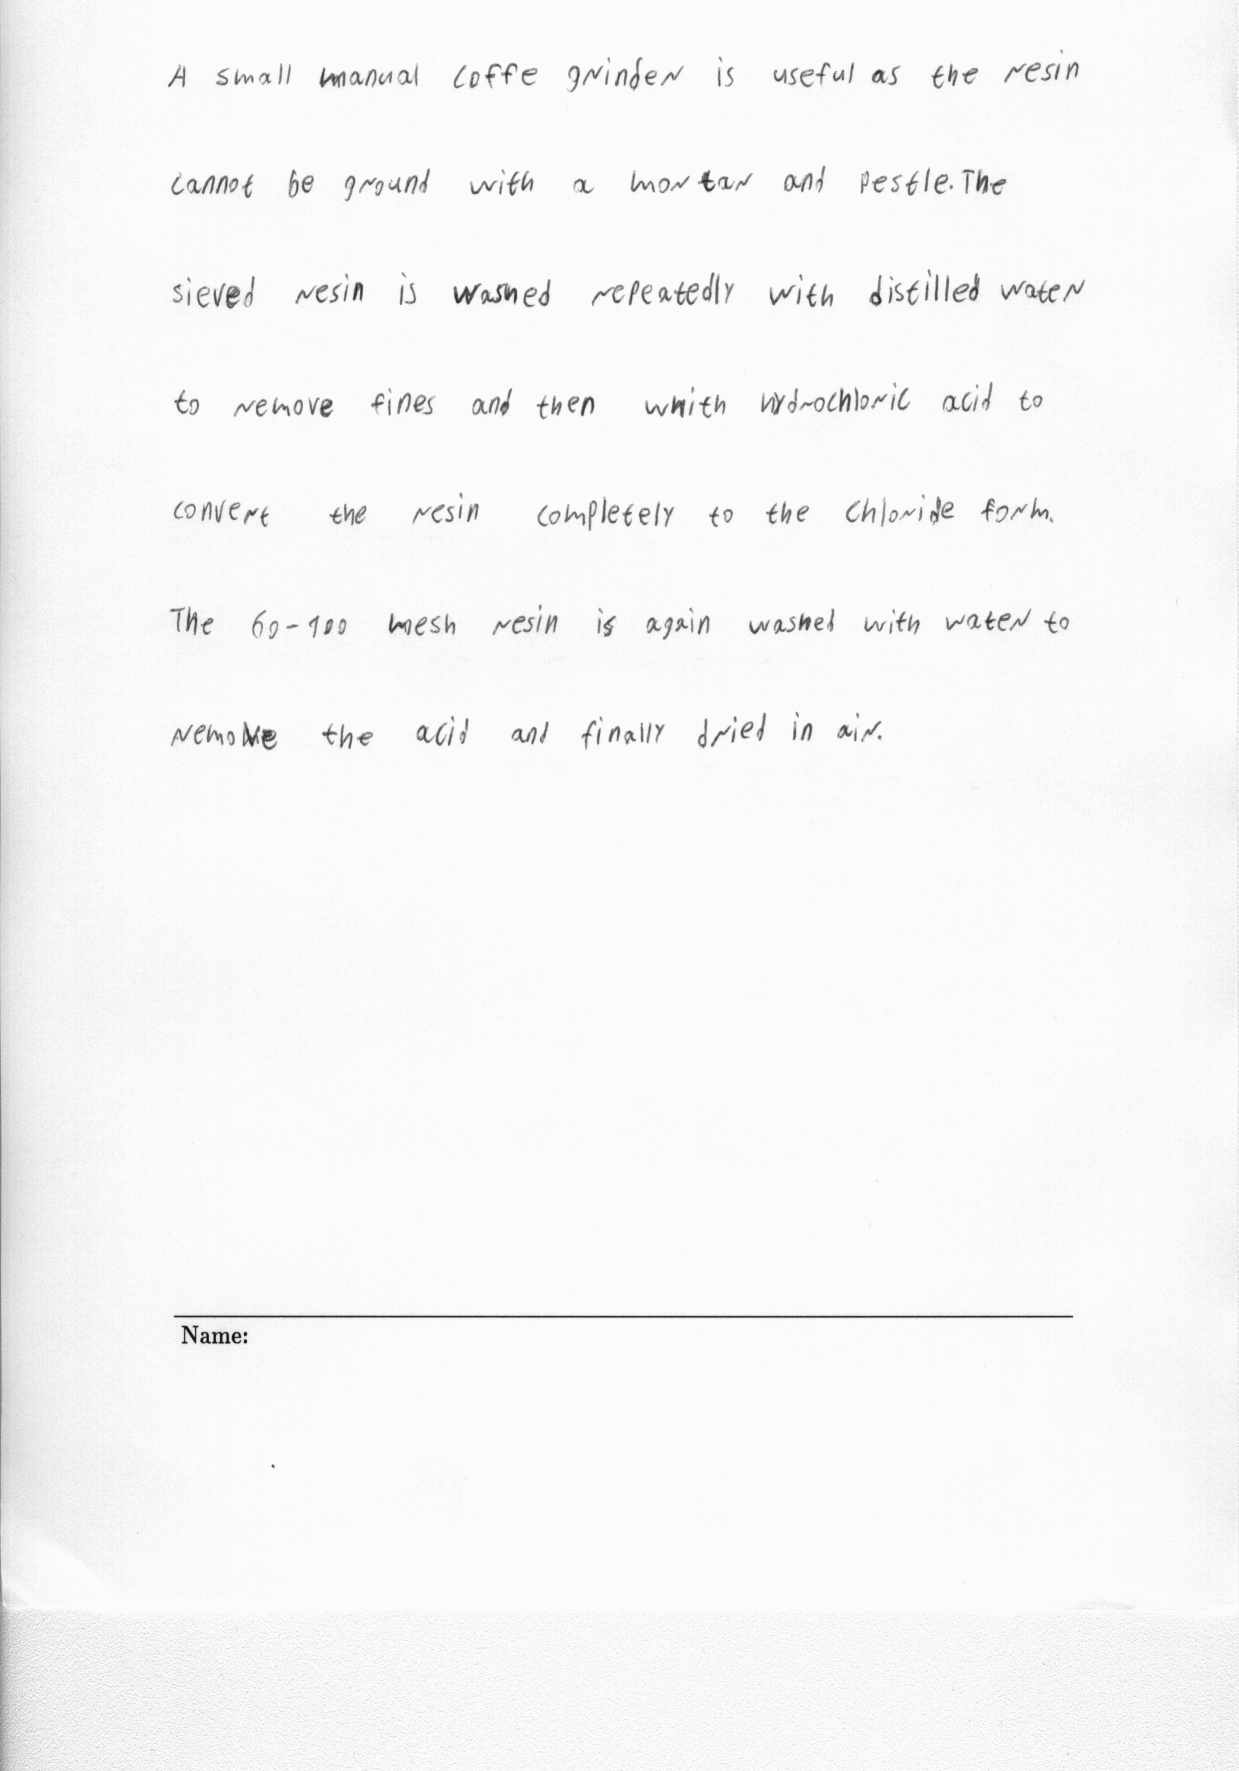 A small manual coffe grinder is useful as the resin
cannot be ground with a mortar and pestle. The
sieved resin is washed repeatedly with distilled water
to remove fines and then whith hydrochloric acid to
convert the resin completely to the chloride form.
The 60-100 mesh resin is again washed with water to
remove the acid and finally dried in air.
Name: